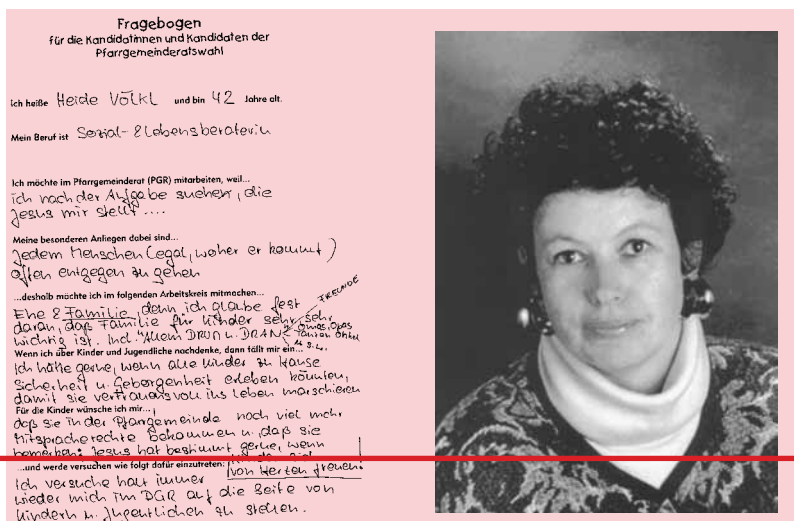 Fragebogen
für die Kandidatinnen und Kandidaten der
Pfarrgemeinderatswahl
Ich heiße Heide Völkl und bin 42 Jahre alt.
Mein Beruf ist Sozial- & Lebensberaterin
Ich möchte im Pfarrgemeinderat (PGR) mitarbeiten, weil...
ich nach der Aufgabe suche, die
Jesus mir stellt ....
Meine besonderen Anliegen dabei sind...
Jedem Menschen (egal, woher er kommt)
offen entgegen zu gehen
...deshalb möchte ich im folgenden Arbeitskreis mitmachen...
Ehe & Familie, denn ich glaube fest
FREUNDE
daran, daß Familie für Kinder sehr, sehr
wichtig ist. Incl. "Allem DRUM u. DRAN"
Omas, Opas
Tanten Onkel
u.s.w.
Wenn ich über Kinder und Jugendliche nachdenke, dann fällt mir ein...
Ich hätte gerne, wenn alle Kinder zu Hause
Sicherheit u. Geborgenheit erleben könnten,
damit sie vertrauensvoll ins Leben marschieren
Für die Kinder wünsche ich mir...
daß sie in der Pfarrgemeinde noch viel mehr
Mitspracherechte bekommen u. daß sie
bemerken: Jesus hat bestimmt gerne, wenn
...und werde versuchen wie folgt dafür einzutreten:
von Herzen freuen!
Ich versuche halt immer
wieder mich im PGR auf die Seite von
Kindern u. Jugendlichen zu stellen.